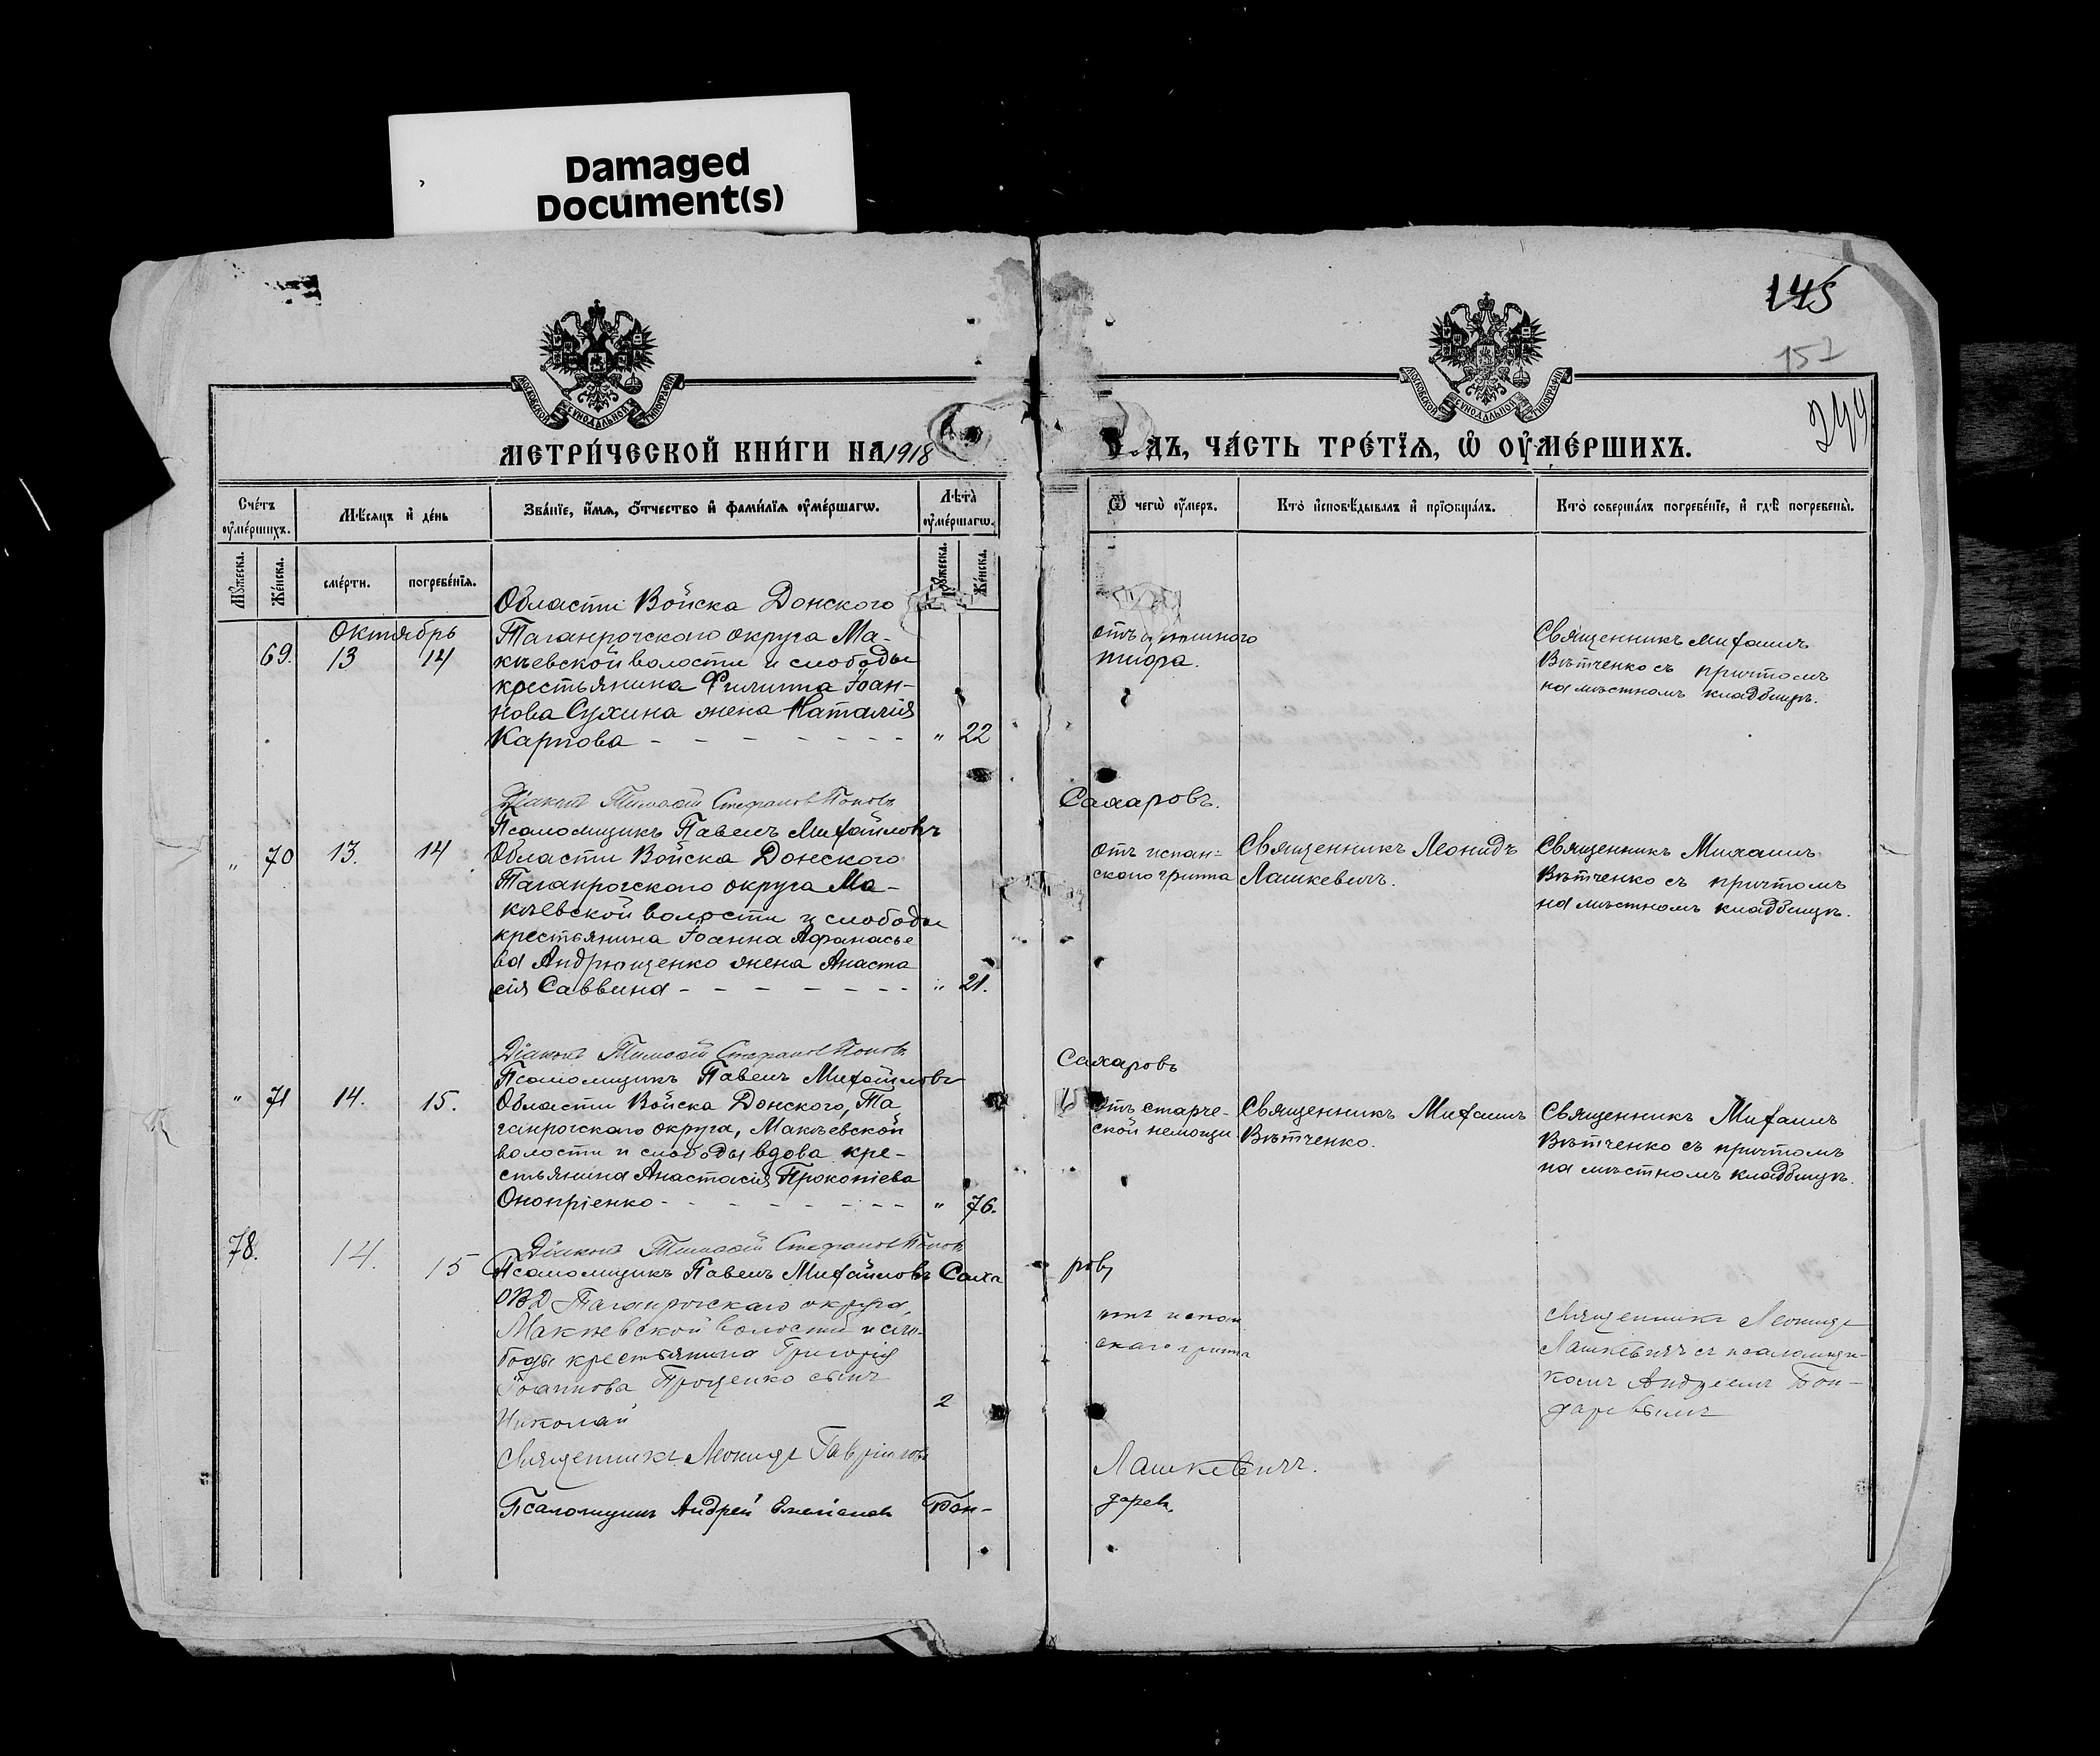 Damaged
Document(s)
145
157
244
МОСКОВСКОЙ СѴНОДАЛЬНОЙ ТИПОГРАФІИ
МОСКОВСКОЙ СѴНОДАЛЬНОЙ ТИПОГРАФІИ
МЕТРИ́ЧЕСКОЙ КНИ́ГИ НА 1918
ДЪ, ЧА́СТЬ ТРЕ́ТЇѦ, Ѡ҆ ОУ҆МЕ́РШИХЪ.
Сче́тъ оу҆ме́ршихъ.
Мѣ́сѧцъ и҆ де́нь
Зва́нїе, и҆́мѧ, ѻ҆́тчество и҆ фами́лїѧ оу҆ме́ршагѡ.
Лѣ́та̀ оу҆ме́ршагѡ.
Ѿ чегѡ̀ оу҆́меръ.
Кто̀ и҆сповѣ́дывалъ и҆ прїѡбща́лъ.
Кто̀ соверша́лъ погребе́нїе, и҆ гдѣ̀ погребены̀.
Мꙋ́жеска.
Же́нска.
сме́рти.
погребе́нїѧ.
Мꙋ́жеска.
Же́нска.
Октябрь
69. 13 14
Области Войска Донского
Таганрогскаго округа Ма-
кѣевской волости и слободы
крестьянина Филиппа Іоан-
нова Сухина жена Наталія
Карпова - - - - - - - " 22
отъ
тифа.
Священникъ Михаилъ
Вѣтченко съ причтомъ
на мѣстномъ кладбищѣ.
Діаконъ Тимоѳей Стефановъ Поповъ
Псаломщикъ Павелъ Михайловъ
Сахаровъ.
" 70 13. 14
Области Войска Донского
Таганрогскаго округа Ма-
кѣевской волости и слободы
крестьянина Іоанна Афанасье
ва Андрющенко жена Анаста
сія Саввина - - - - - - - " 21.
отъ испан-
скаго гриппа
Священникъ Леонидъ
Лашкевичъ.
Священникъ Михаилъ
Вѣтченко съ причтомъ
на мѣстномъ кладбищѣ.
Діаконъ Тимоѳей Стефановъ Поповъ
Псаломщикъ Павелъ Михайловъ
Сахаровъ
" 71 14. 15.
Области Войска Донского, Та
ганрогскаго округа, Макѣевской
волости и слободы вдова кре-
стьянина Анастасія Прокопіева
Оноприенко - - - - - - - " 76.
отъ старче-
ской немощи.
Священникъ Михаилъ
Вѣтченко.
Священникъ Михаилъ
Вѣтченко съ причтомъ
на мѣстномъ кладбищѣ.
Діаконъ Тимоѳей Стефановъ Поповъ
Псаломщикъ Павелъ Михайловъ Саха
ровъ
78. 14. 15
ОВД Таганрогскаго округа,
Макѣевской волости и сло-
боды крестьянина Григорія
Іоаннова Проценко сынъ
Николай
2
отъ испан
скаго гриппа
Священникъ Леонидъ
Лашкевичъ съ псаломщи-
комъ Андреемъ Бон-
даревымъ
Священникъ Леонидъ Гавріиловъ
Лашкевичъ.
Псаломщикъ Андрей Бон-
даревъ.